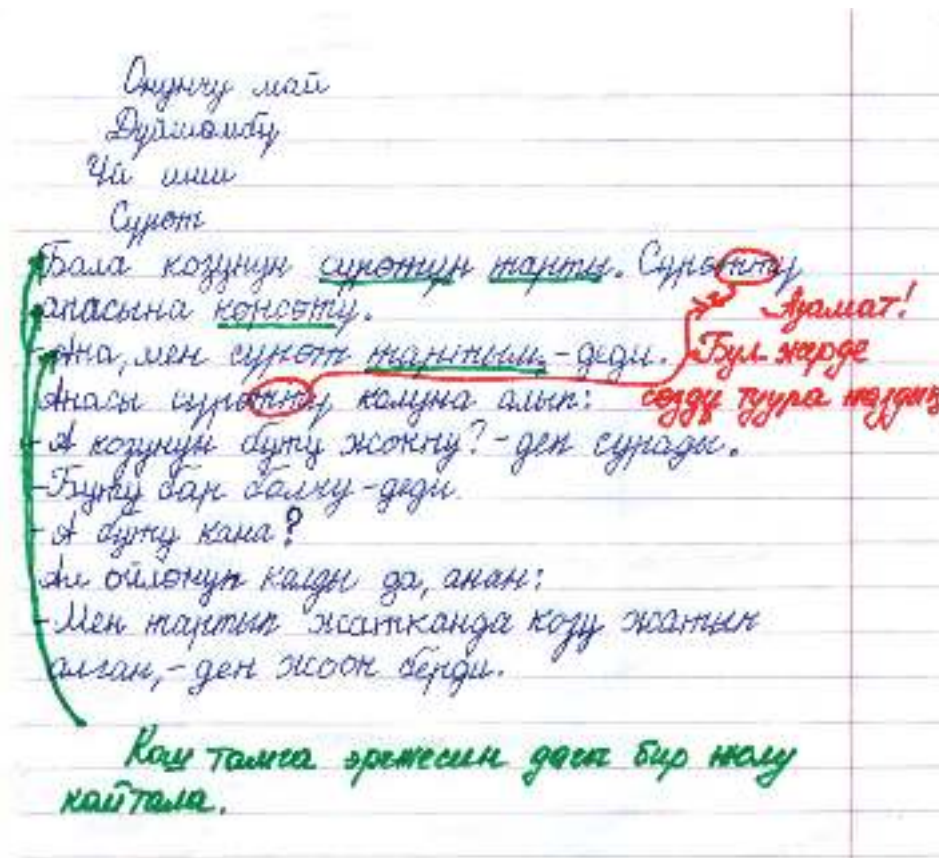 Онунчу май
Дүйшөмбү
Үй иши
Сүрөт
Бала козунун сүрөтүн тарты. Сүрөттү
апасына көрсөтү.
-Апа, мен сүрөт тарттым,-деди.
Апасы сүрөттү колуна алып:
-А козунун буту жокпу?-деп сурады.
-Буту бар болчу-деди.
-А буту кана?
Ал ойлонуп калды да, анан:
-Мен тартып жатканда козу жатып
алган,-деп жооп берди.
Азамат!
Бул жерде
сөздү туура
Кош тамга эрежесин дагы бир жолу
кайтала.